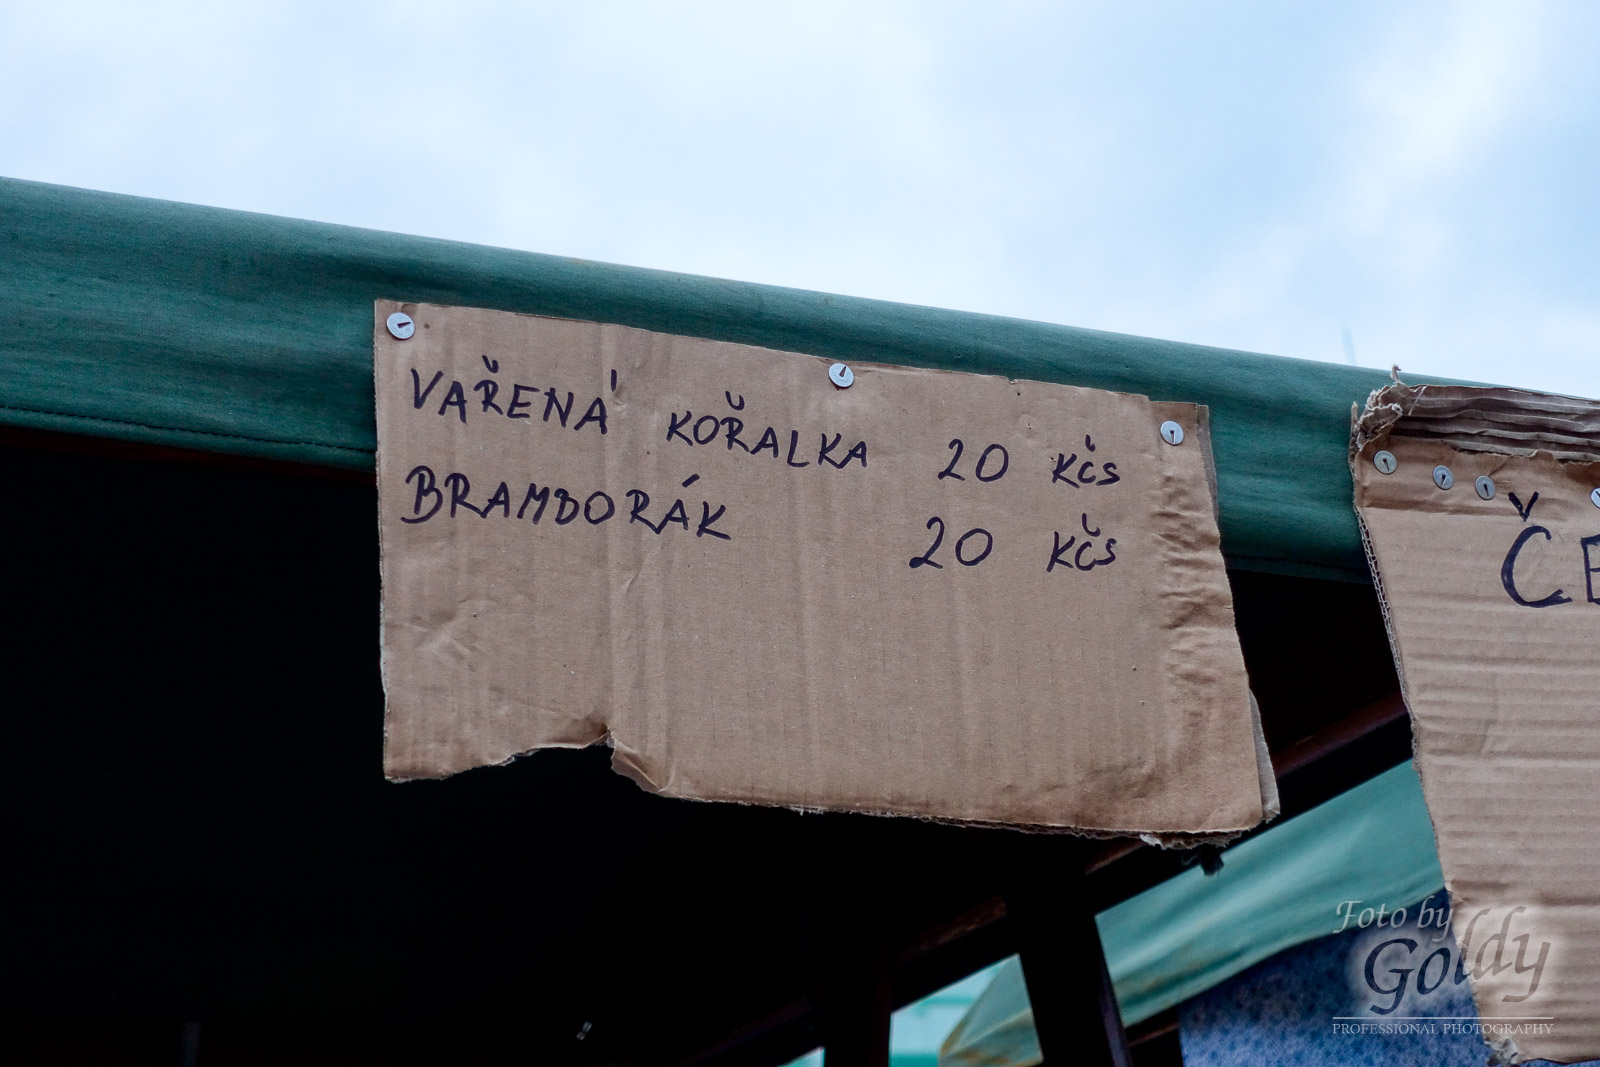 VAŘENÁ KOŘALKA 20 KČS
BRAMBORÁK 20 KČS
Foto by
Goldy
PROFESSIONAL PHOTOGRAPHY